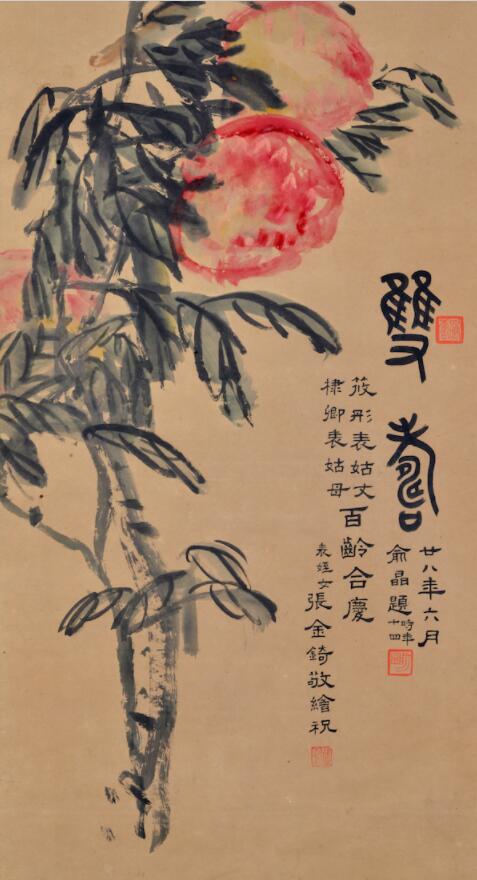 雙壽
廿八年六月
俞晶題時年十四
筱彤表姑丈百齡合慶
棣卿表姑母
表姪女張金錡敬繪祝